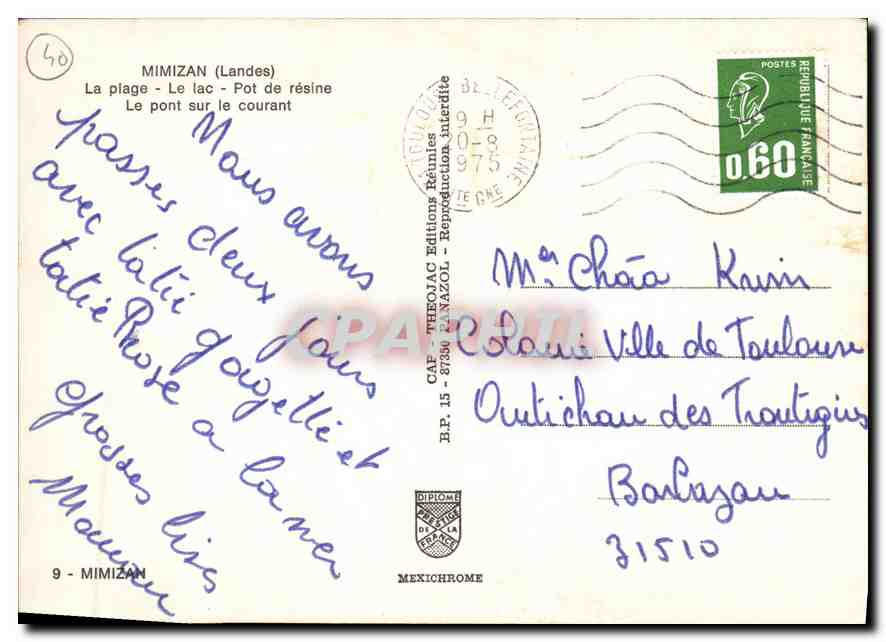 40
MIMIZAN (Landes)
La plage - Le lac - Pot de résine
Le pont sur le courant
Nous avons
passes deux jours
avec tatie gogette et
tatie Rose a la mer
grosses bises
Maman
9 - MIMIZAN
CAP - THEOJAC Editions Réunies
B.P. 15 - 87350 PANAZOL - Reproduction interdite
DIPLOME
PRESTIGE
DE LA
FRANCE
MEXICHROME
TOULOUSE BELLEFONTAINE
9 H
0-8
1975
HTE GNE
POSTES
REPUBLIQUE FRANÇAISE
0,60
Colonie Ville de Toulouse
Antichan des Frontignes
Barbazan
31510
CPAPHIL